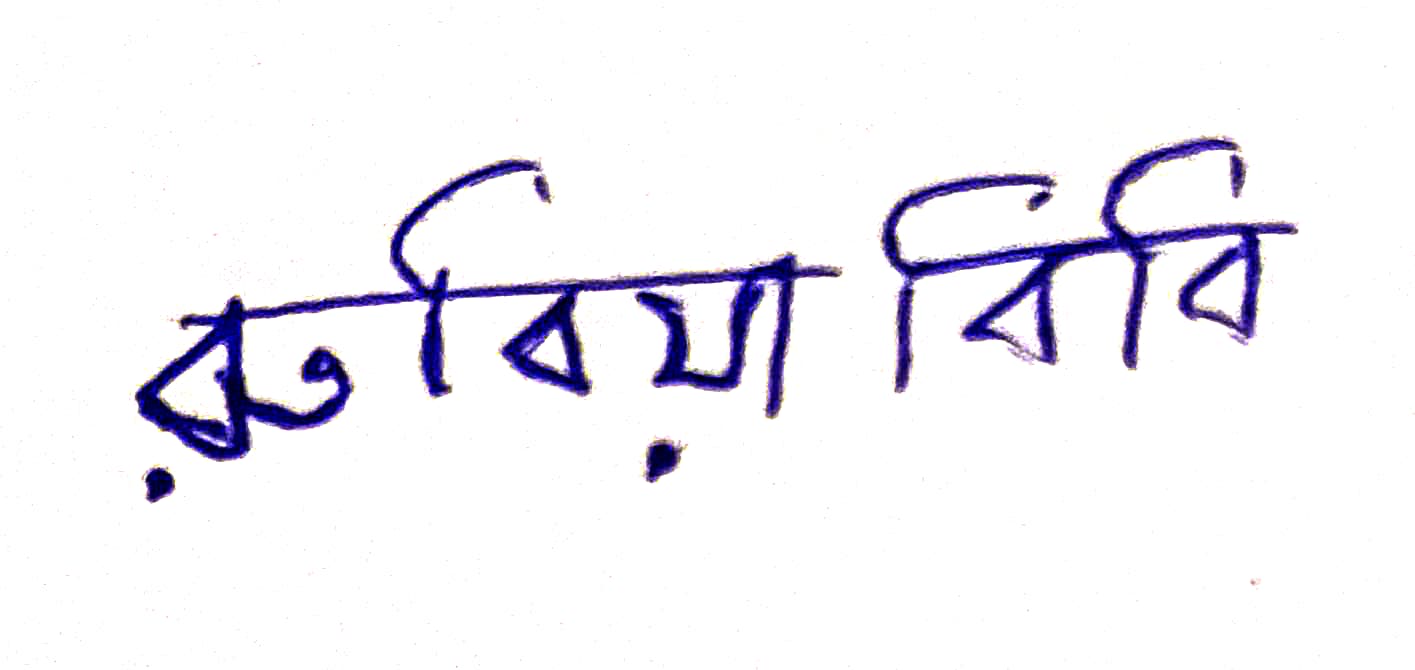 রুবিয়া বিবি